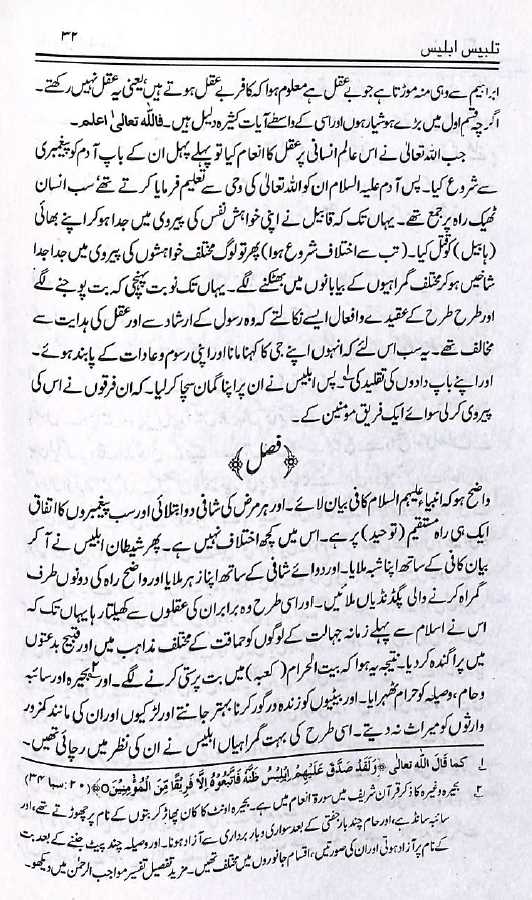 تلبیس ابلیس ۳۲
ابراہیم سے وہی منہ موڑتا ہے جو بے عقل ہے معلوم ہوا کہ کافر بے عقل ہوتے ہیں، یعنی یہ عقل نہیں رکھتے۔
اگرچہ قسم اول میں بڑے ہوشیار ہوں اور اسی کے واسطے آیات کثیرہ دلیل ہیں۔ فاللہ تعالیٰ اعلم۔
جب اللہ تعالیٰ نے اس عالم انسانی پر عقل کا انعام کیا تو پہلے پہل ان کے باپ آدم کو پیغمبری
سے شروع کیا۔ پس آدم علیہ السلام ان کو اللہ تعالیٰ کی وحی سے تعلیم فرمایا کرتے تھے سب انسان
ٹھیک راہ پر جمع تھے۔ یہاں تک کہ قابیل نے اپنی خواہش نفس کی پیروی میں جدا ہو کر اپنے بھائی
(ہابیل) کو قتل کیا۔ (تب سے اختلاف شروع ہوا) پھر تو لوگ مختلف خواہشوں کی پیروی میں جدا جدا
شاخیں ہو کر مختلف گمراہیوں کے بیابانوں میں بھٹکنے لگے۔ یہاں تک نوبت پہنچی کہ بت پوجنے لگے
اور طرح طرح کے عقیدے و افعال ایسے نکالے تھے کہ وہ رسول کے ارشاد سے اور عقل کی ہدایت سے
مخالف تھے۔ یہ سب اس لئے کہ انہوں اپنے جی کا کہنا مانا اور اپنی رسوم و عادات کے پابند ہوئے۔
اور اپنے باپ دادوں کی تقلید کی۱ پس ابلیس نے ان پر اپنا گمان سچا کر لیا۔ کہ ان فرقوں نے اس کی
پیروی کر لی سوائے ایک فریق مومنین کے۔
﴿ فصل ﴾
واضح ہو کہ انبیاء علیہم السلام کافی بیان لائے۔ اور ہر مرض کی شافی دوا بتلائی اور سب پیغمبروں کا اتفاق
ایک ہی راہ مستقیم (توحید) پر ہے۔ اس میں کچھ اختلاف نہیں ہے۔ پھر شیطان ابلیس نے آ کر
بیان کافی کے ساتھ اپنا شبہ ملایا۔ اور دوائے شافی کے ساتھ اپنا زہر ملایا اور واضح راہ کی دونوں طرف
گمراہ کرنے والی پگڈنڈیاں ملائیں۔ اور اسی طرح وہ برابر ان کی عقلوں سے کھیلتا رہا یہاں تک کہ
اس نے اسلام سے پہلے زمانہ جہالت کے لوگوں کو حماقت کے مختلف مذاہب میں اور قبیح بدعتوں
میں پراگندہ کر دیا۔ نتیجہ یہ ہوا کہ بیت الحرام (کعبہ) میں بت پرستی کرنے لگے۔ اور۲ بحیرہ اور سائبہ
و حام، وصیلہ کو حرام ٹھہرایا۔ اور بیٹیوں کو زندہ درگور کرنا بہتر جانتے اور لڑکیوں اور ان کی مانند کمزور
وارثوں کو میراث نہ دیتے۔ اسی طرح کی بہت گمراہیاں ابلیس نے ان کی نظر میں رچائی تھیں۔
۱ کما قال اللہ تعالی ﴿وَلَقَدْ صَدَّقَ عَلَيْهِمْ اِبْلِيْسُ ظَنَّهٗ فَاتَّبَعُوْهُ اِلَّا فَرِيْقًا مِّنَ الْمُؤْمِنِيْنَ﴾ (۲۰: سبا ۳۴)
۲ بحیرہ وغیرہ کا ذکر قرآن شریف میں سورۂ انعام میں ہے۔ بحیرہ اونٹ کا کان پھاڑ کر بتوں کے نام پر چھوڑتے تھے، اور
سائبہ سانڈ ہے، اور حام چند بار جفتی کے بعد سواری و بار برداری سے آزاد ہوتا۔ اور وصیلہ چند پیٹ جننے کے بعد بت
کے نام پر آزاد ہوتی اور ان کی صورتیں، اقسام جانوروں میں مختلف تھیں۔ مزید تفصیل تفسیر مواہب الرحمٰن میں دیکھو۔